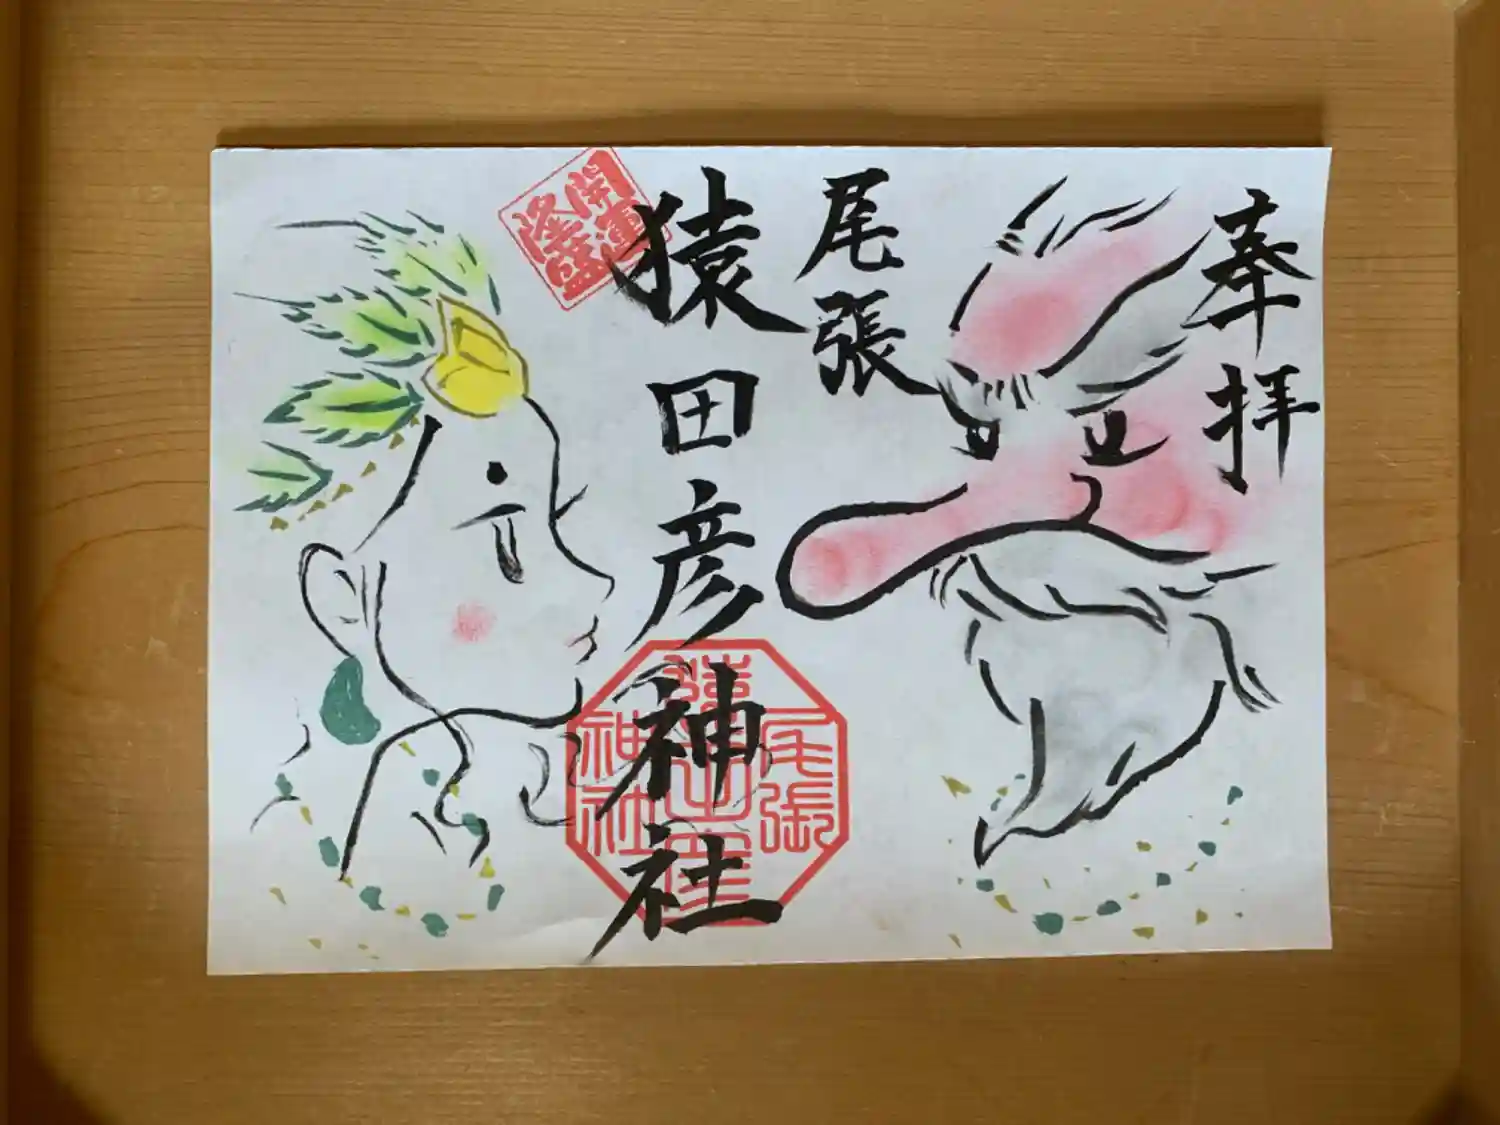 奉拝
尾張
猿田彦神社
開運
隆盛
尾張
猿田彦
神社